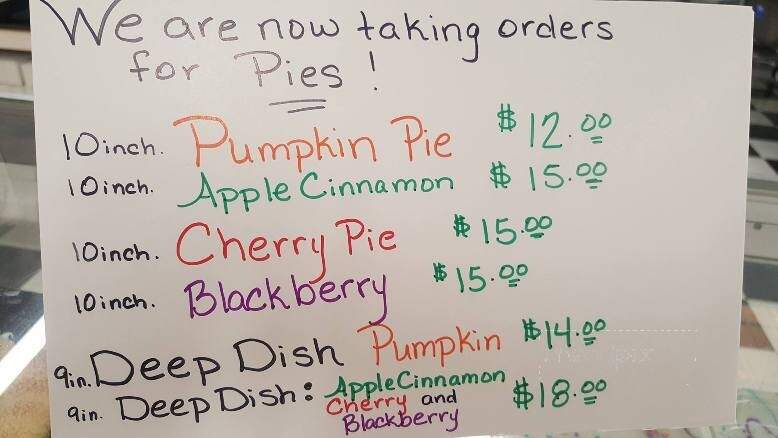 We are now taking orders
for Pies!
10inch. Pumpkin Pie $12.00
10inch. Apple Cinnamon $15.00
10inch. Cherry Pie $15.00
10inch. Blackberry $15.00
9in. Deep Dish Pumpkin $14.00
9in. Deep Dish: Apple Cinnamon $18.00
Cherry and
Blackberry